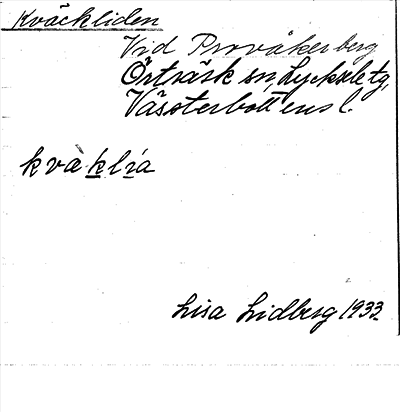 Kväckliden
Vid Provåkerberg
Örträsk sn, Lycksele tg,
Västerbottens l.
kvàklía
Lisa Lidberg 1933